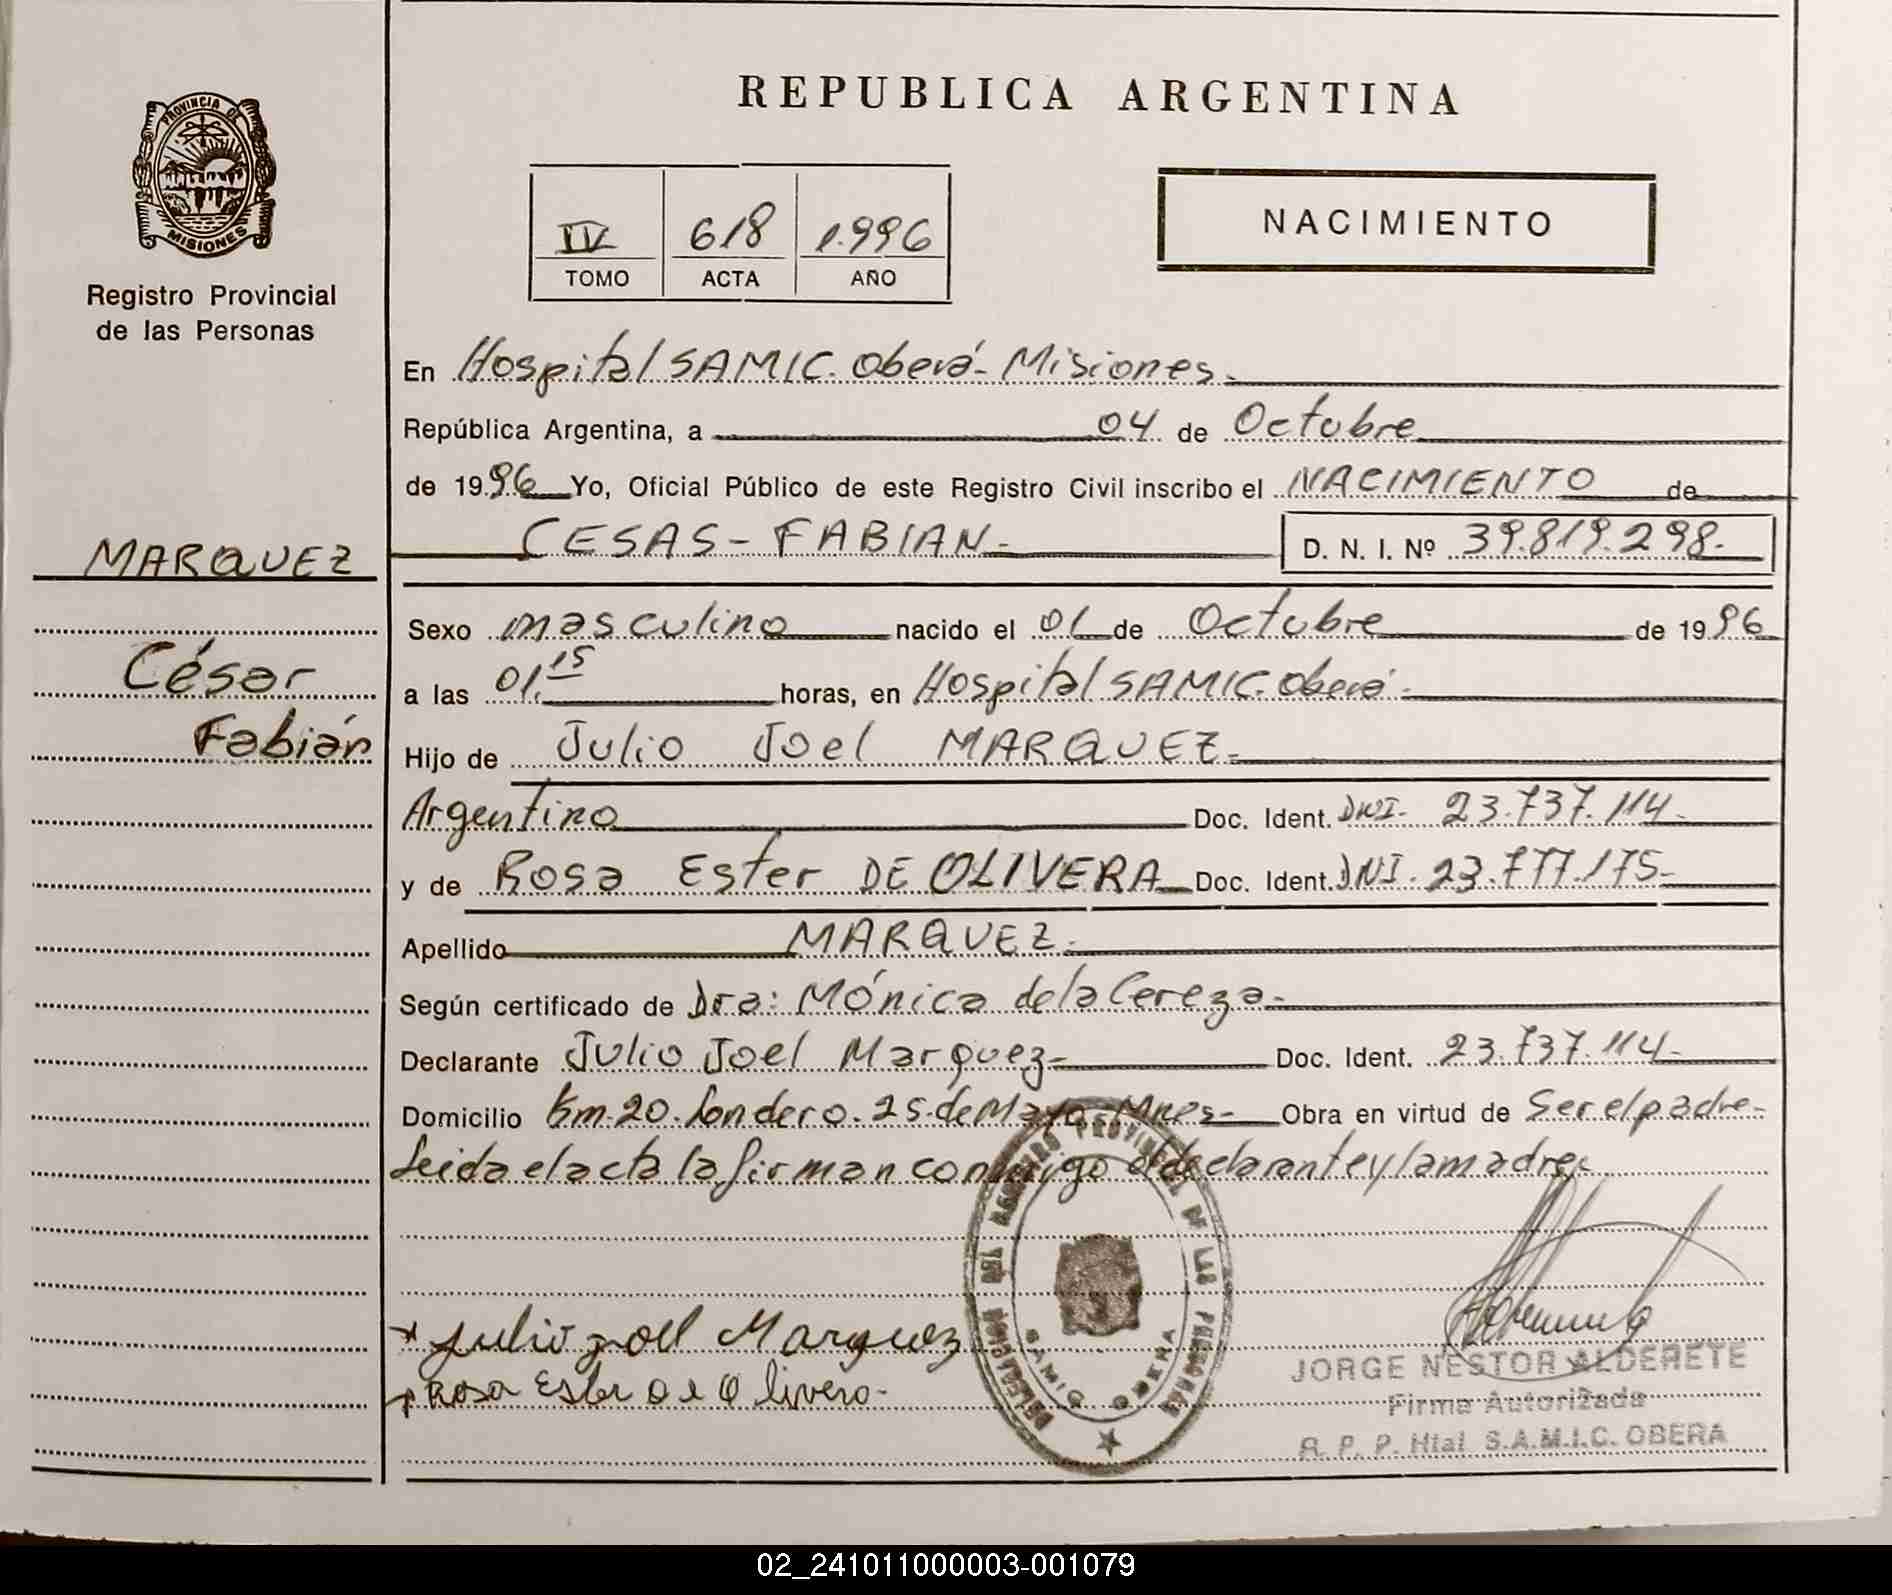 REPUBLICA ARGENTINA
PROVINCIA DE
MISIONES
Registro Provincial
de las Personas
IV 618 1.996
TOMO ACTA AÑO
NACIMIENTO
En Hospital SAMIC. Oberá - Misiones.
República Argentina, a 04 de Octubre
de 1996 Yo, Oficial Público de este Registro Civil inscribo el NACIMIENTO de
MARQUEZ
César
Fabián
CESAS - FABIAN - D. N. I. Nº 39.819.298.-
Sexo masculino nacido el 01 de Octubre de 1996
a las 01.15 horas, en Hospital SAMIC. Oberá -
Hijo de Julio Joel MARQUEZ -
Argentino Doc. Ident. DNI. 23.737.114.-
y de Rosa Ester DE OLIVERA Doc. Ident. DNI. 23.777.175.-
Apellido MARQUEZ.-
Según certificado de Dra: Mónica de la Cereza.-
Declarante Julio Joel Marquez - Doc. Ident. 23.737.114.-
Domicilio Km. 20. Londero. 25 de Mayo. Mnes - Obra en virtud de Ser el padre -
Leida el acta la firman conmigo el declarante y la madre.
* Julio Joel Marquez
Rosa Ester De Olivera -
DELEGACION DEL REGISTRO PROVINCIAL DE LAS PERSONAS
SAMIC OBERA
JORGE NESTOR ALDERETE
Firma Autorizada
R. P. P. Htal S.A.M.I.C. OBERA
02_241011000003-001079